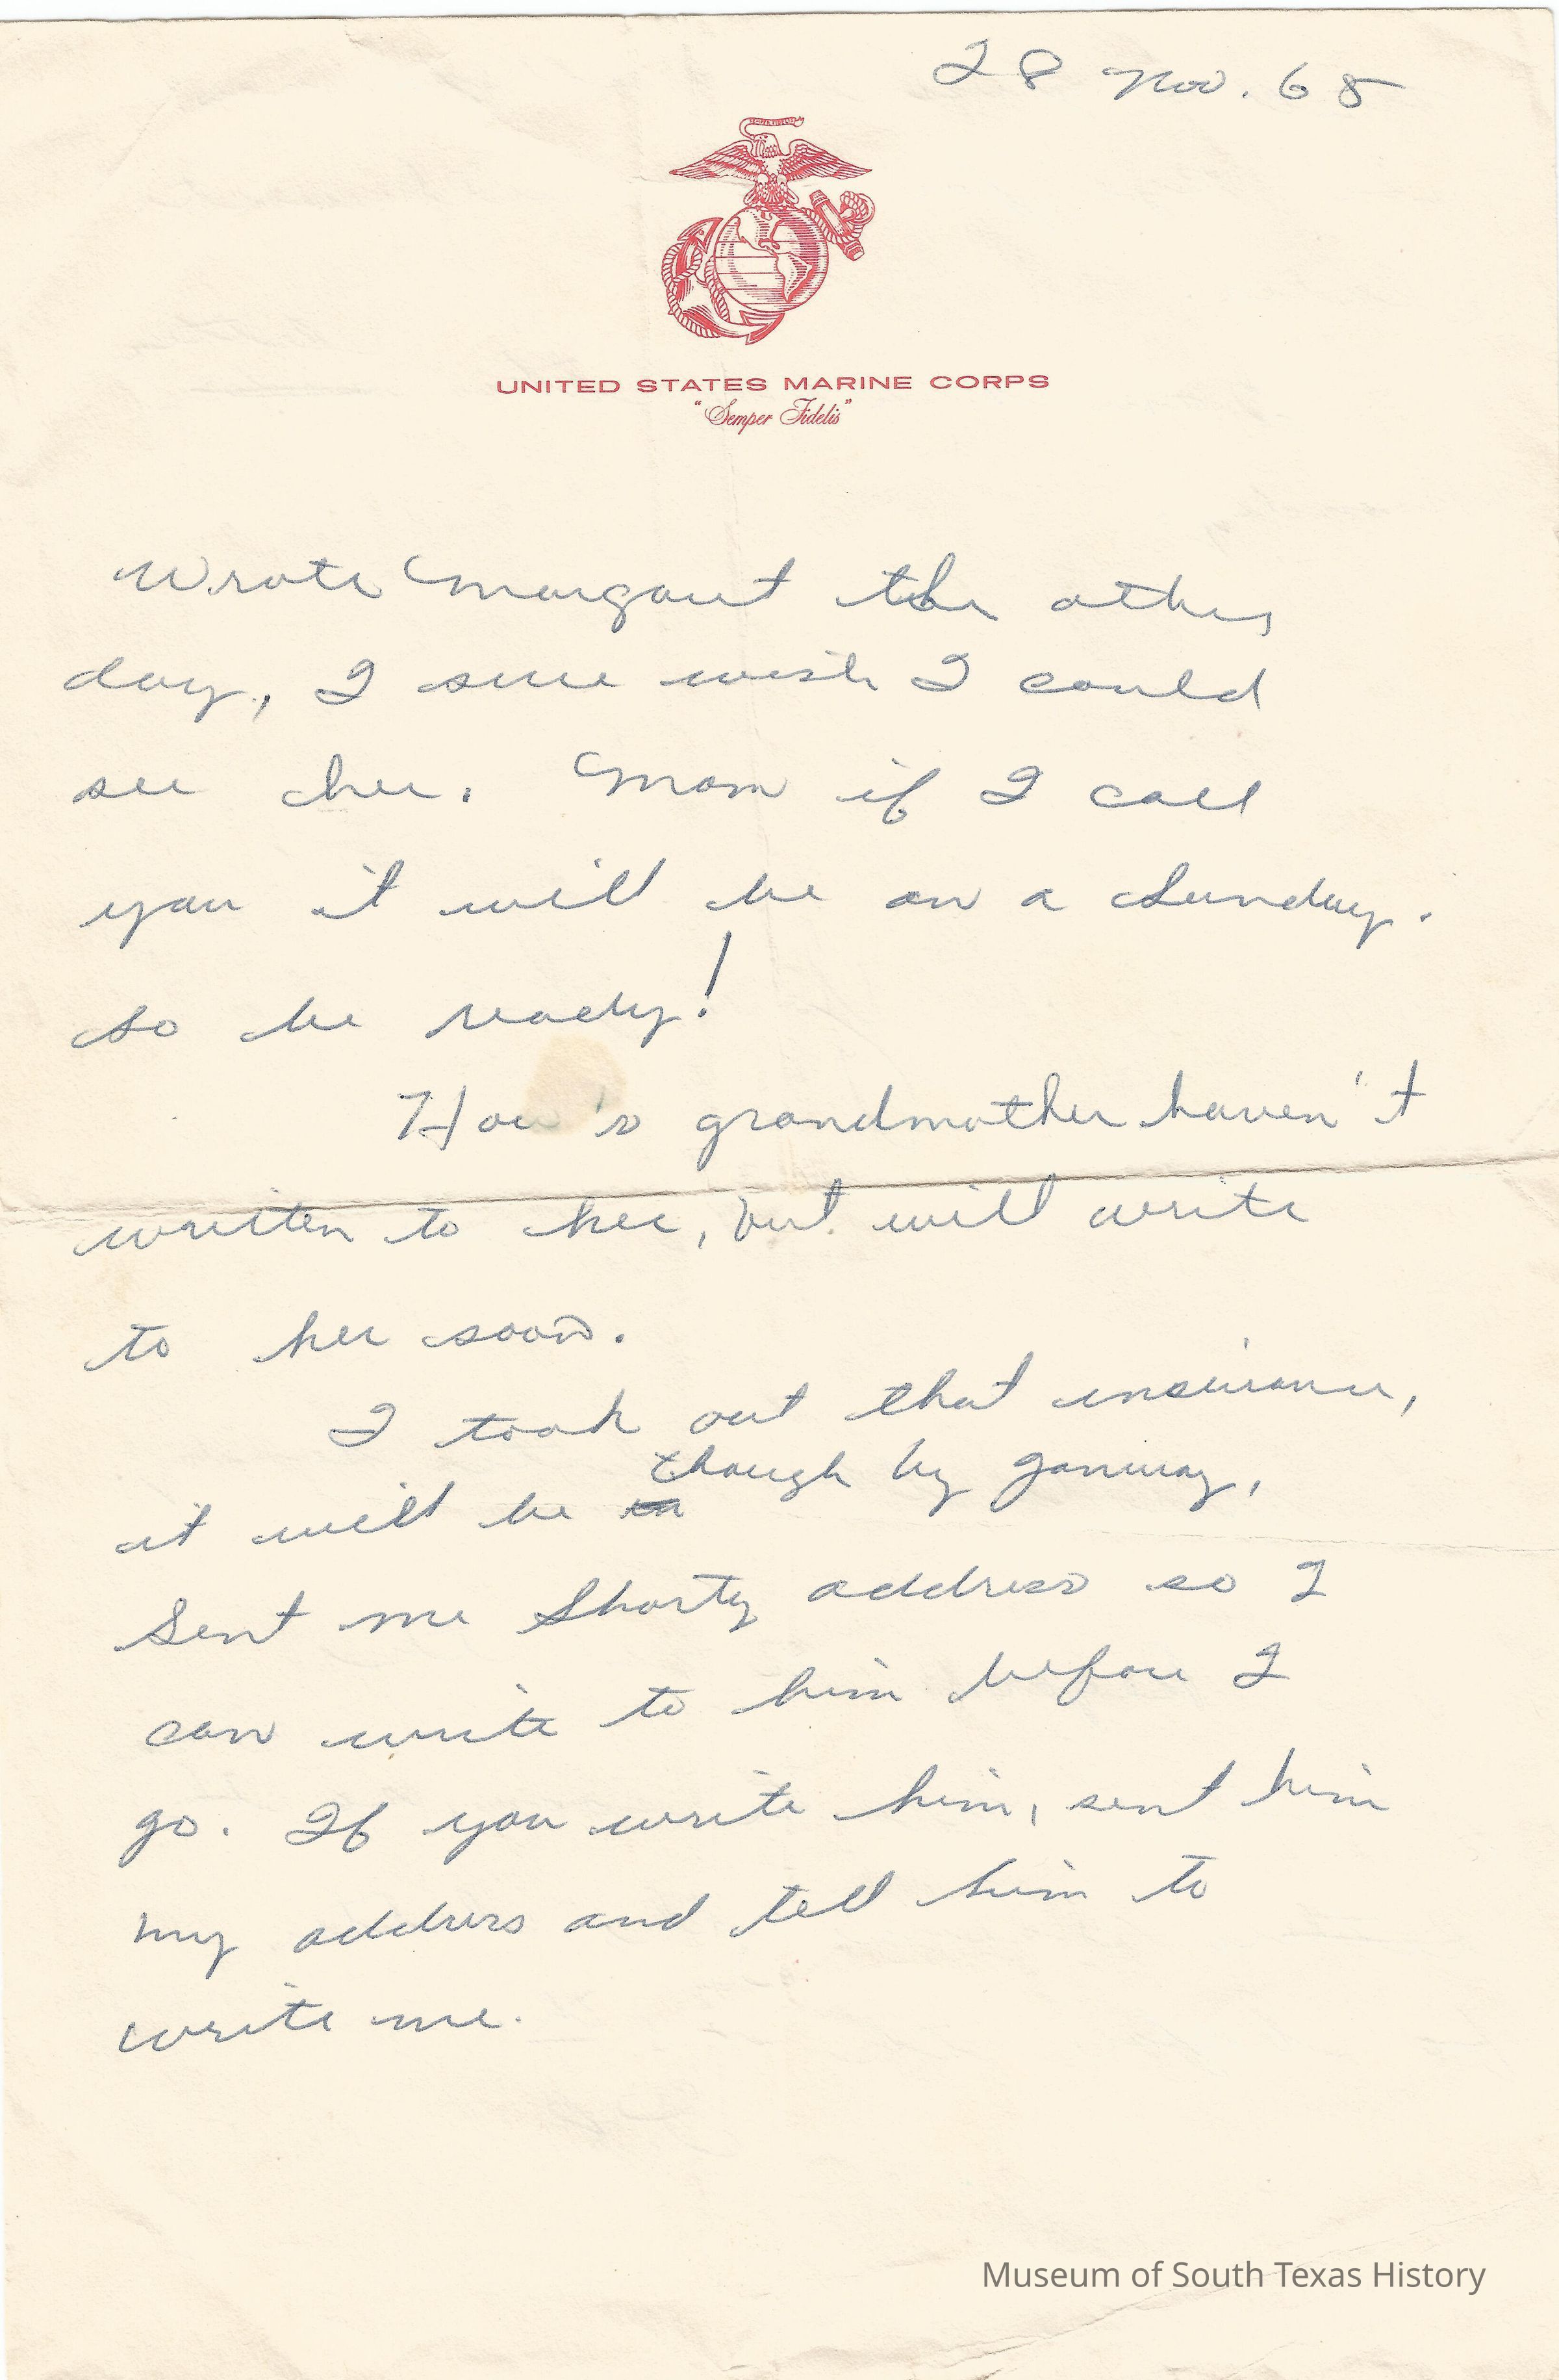 28 Nov. 68
UNITED STATES MARINE CORPS
"Semper Fidelis"
Wrote Margaret the other
day, I sure wish I could
see her. Mom if I call
you it will be on a Sunday.
so be ready!
How's grandmother haven't
written to her, but will write
to her soon.
I took out that insurance,
it will be though by January,
Sent me Shorty address so I
can write to him before I
go. If you write him, sent him
my address and tell him to
write me.
Museum of South Texas History